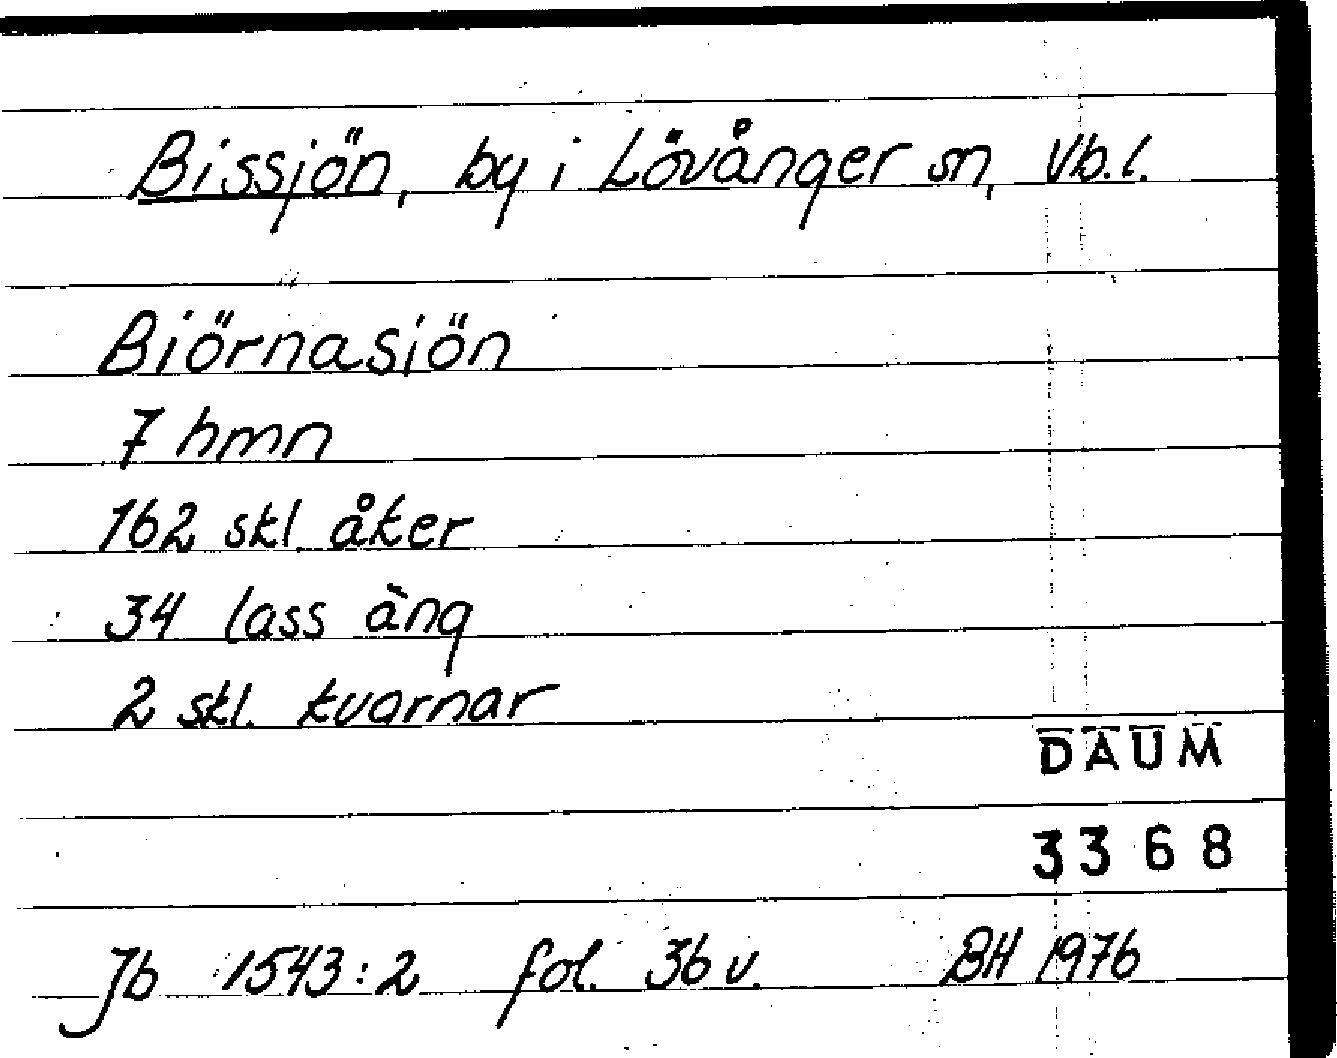 Bissjön, by i Lövånger sn, Vb.l.
Biörnasiön
7 hmn
162 skl åker
34 lass äng
2 skl. kvarnar
DAUM
3368
Jb 1543:2 fol. 36 v. BH 1976